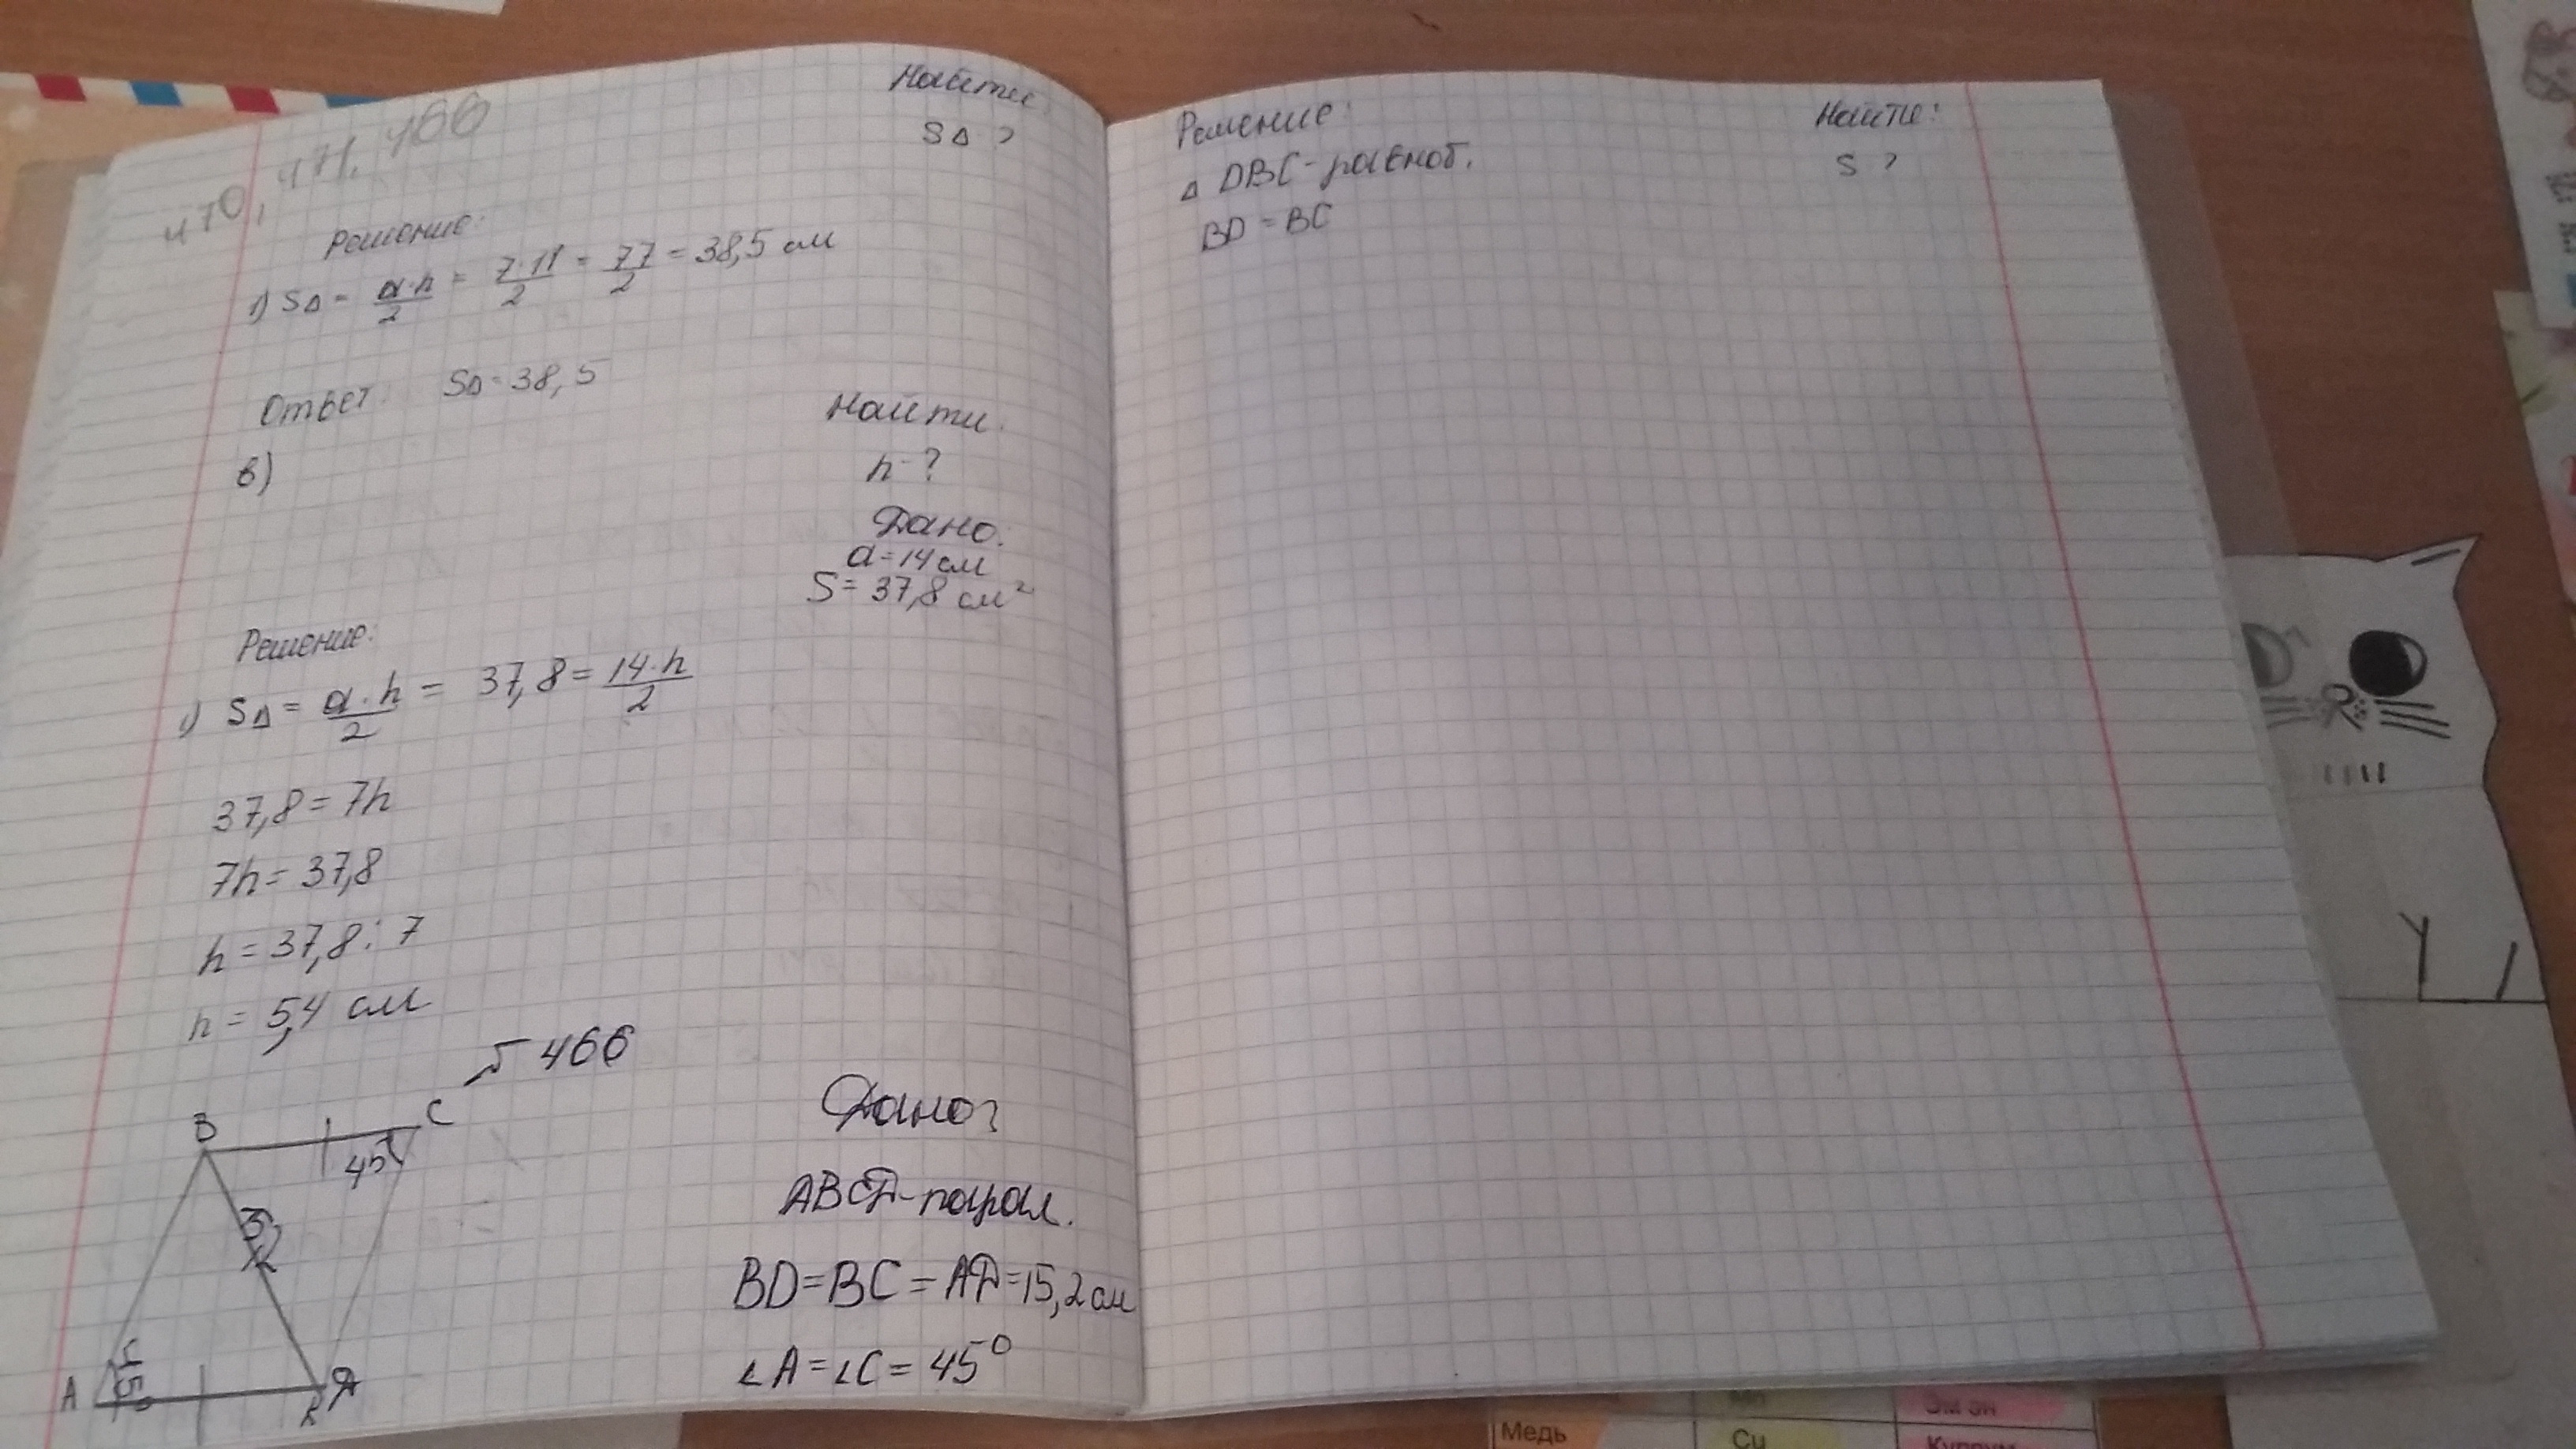 470, 471, 466
Найти:
S∆ ?
Решение:
1) S∆ = a·h/2 = 7·11/2 = 77/2 = 38,5 см
Ответ: S∆ = 38,5
в)
Найти:
h - ?
Дано:
a = 14 см
S = 37,8 см²
Решение:
1) S∆ = a·h/2 = 37,8 = 14·h/2
37,8 = 7h
7h = 37,8
h = 37,8 : 7
h = 5,4 см
466
B
C
45
A
45°
Дано:
ABCД - парал.
BD = BC = AД = 15,2 см
∠A = ∠C = 45°
Решение:
∆ DBC - равноб.
BD = BC
Найти:
S ?
Медь
Cu
Эм эн
Купрум